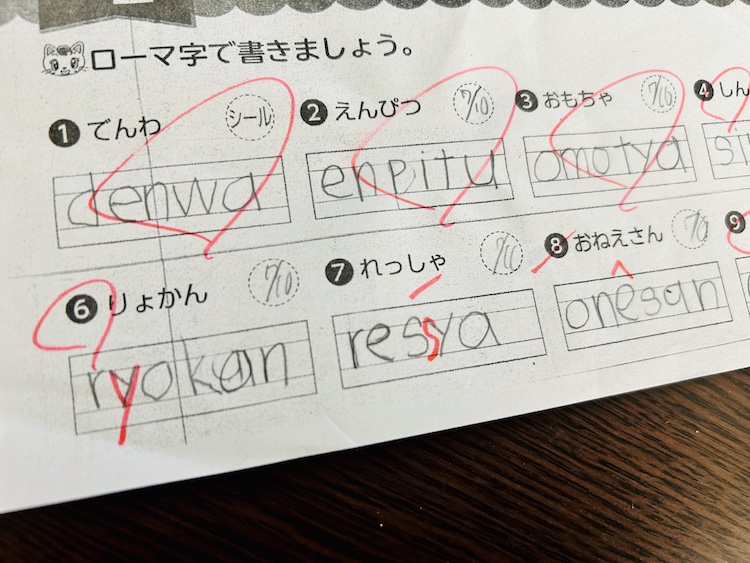 ローマ字で書きましょう。
1 でんわ シール 2 えんぴつ 7/10 3 おもちゃ 7/10 4 しん
denwa enpitu omotya
6 りょかん 7/10 7 れっしゃ 7/11 8 おねえさん 9
ryokan ressya onesan